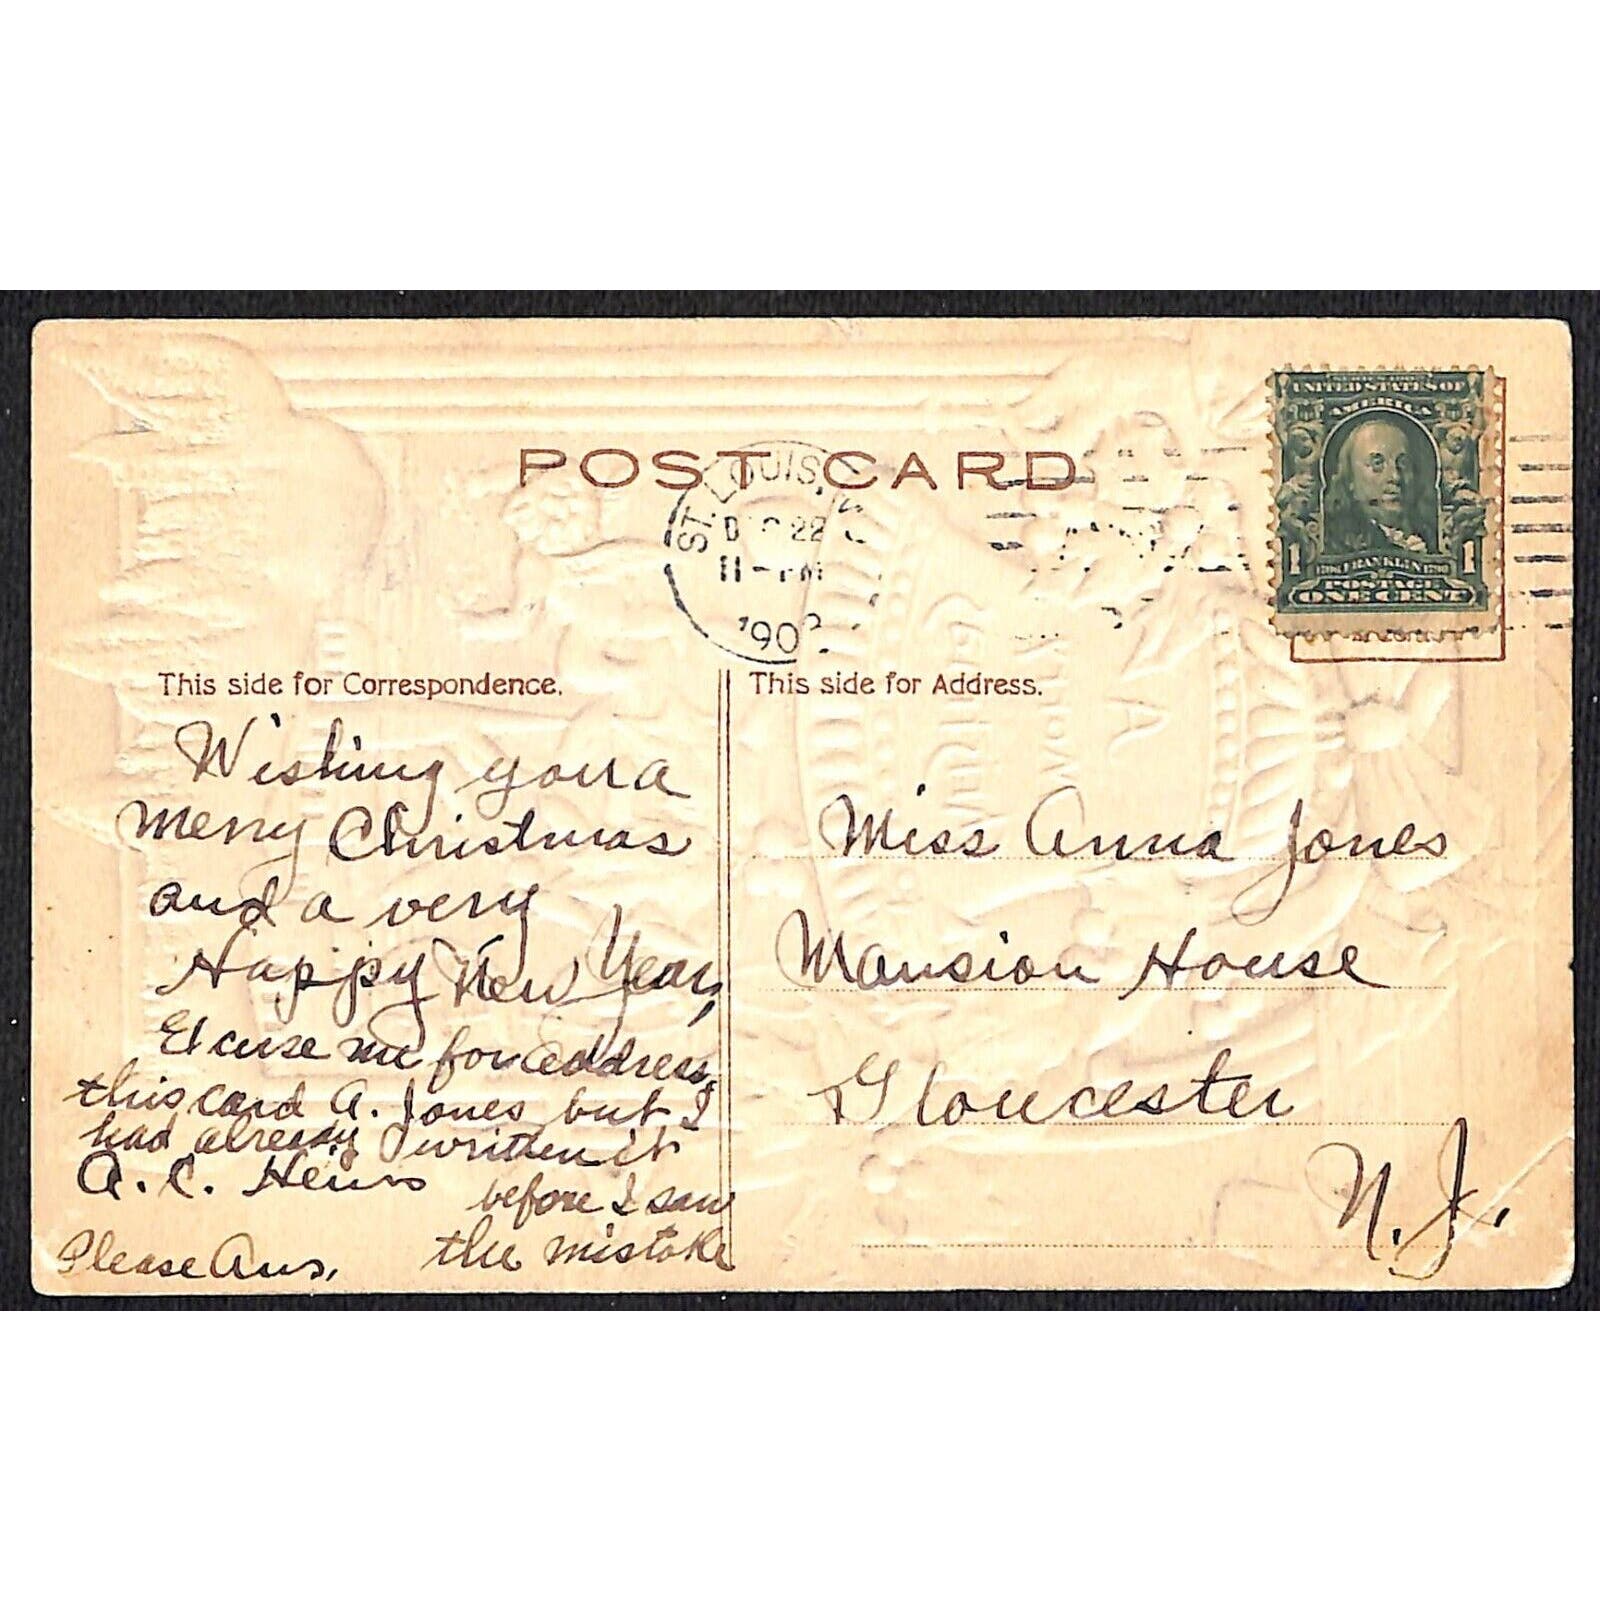 POST CARD
ST. LOUIS,
22
11-PM
190
UNITED STATES OF
AMERICA
1 FRANKLIN 1
POSTAGE
ONE CENT
This side for Correspondence.
Wishing you a
merry Christmas
and a very
Happy New Year,
Excuse me for address
this card A. Jones but I
had already written it
before I saw
the mistake
A. C.
Please Ans.
This side for Address.
Miss Anna Jones
Mansion House
Gloucester
N.J.